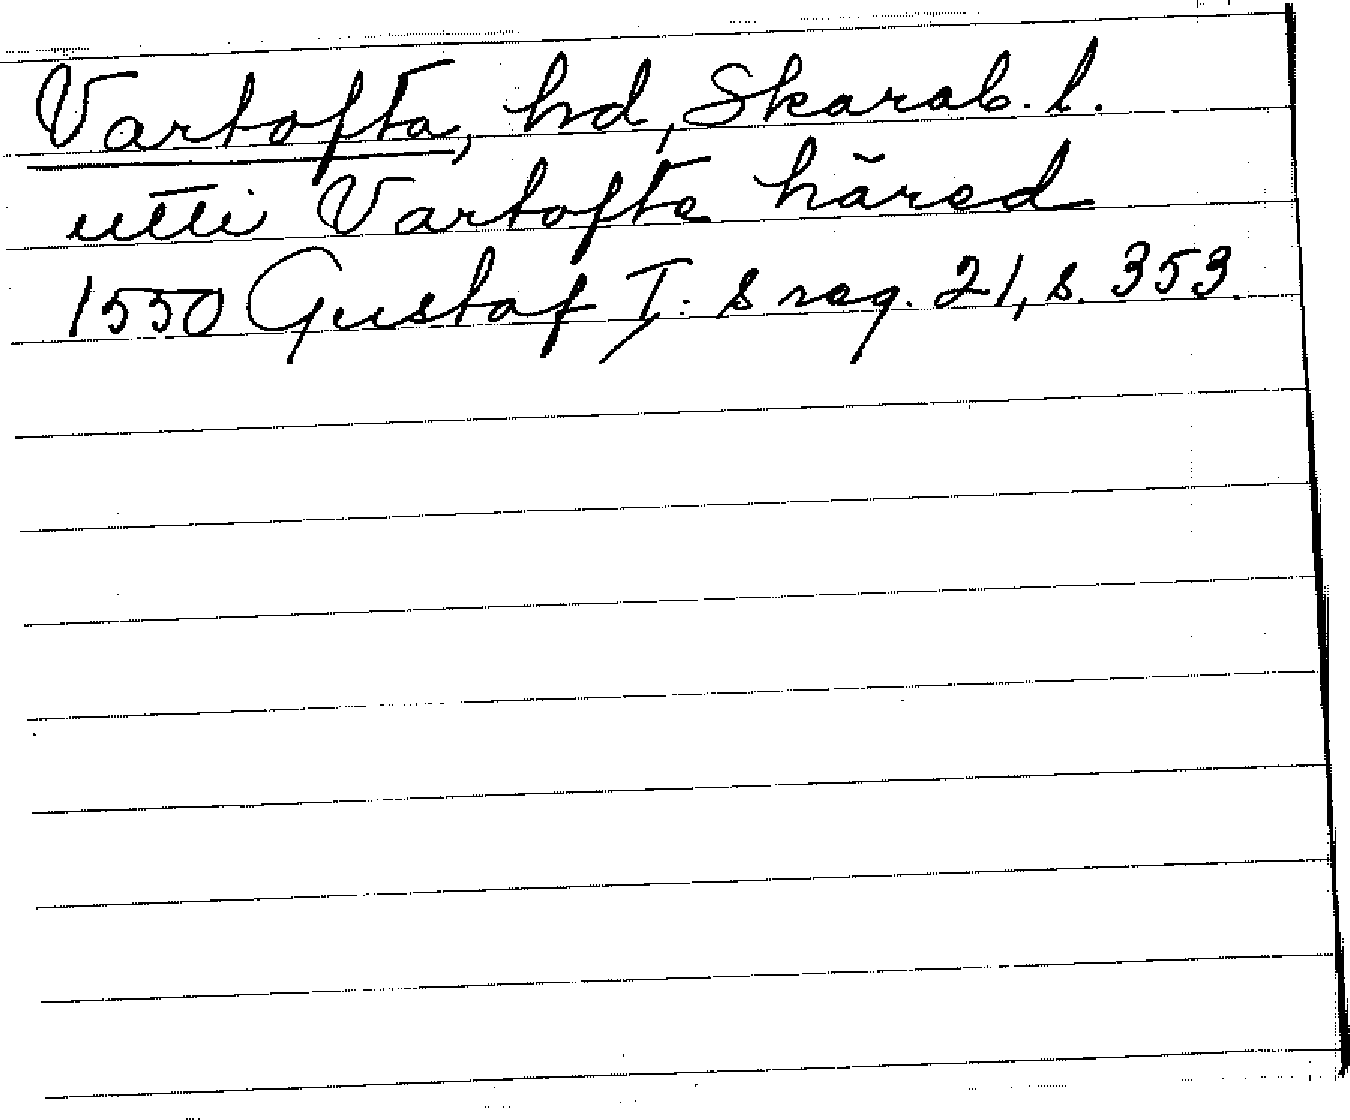 Vartofta, hd, Skarab. l.
utti Vartofte häred
1550 Gustaf I: s reg. 21, s. 353.